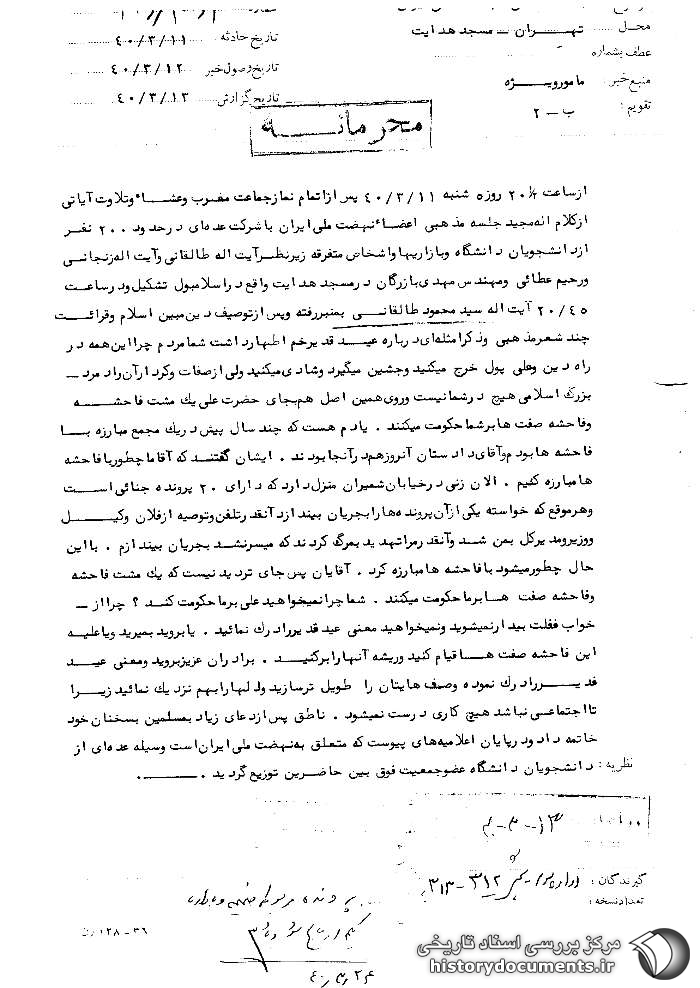 محل تهران - مسجد هدایت
عطف بشماره
منبع خبر: مامور ویژه
تقویم: ب - ۲
تاریخ حادثه ۴۰/۳/۱۱
تاریخ وصول خبر ۴۰/۳/۱۲
تاریخ گزارش ۴۰/۳/۱۳
محرمانه
از ساعت ۲۰ روزه شنبه ۴۰/۳/۱۱ پس از اتمام نماز جماعت مغرب و عشاء و تلاوت آیاتی
از کلام اله مجید جلسه مذهبی اعضاء نهضت ملی ایران با شرکت عده‌ای در حدود ۲۰۰ نفر
از دانشجویان دانشگاه و بازاریها و اشخاص متفرقه زیر نظر آیت اله طالقانی و آیت اله زنجانی
و رحیم عطائی و مهندس مهدی بازرگان در مسجد هدایت واقع در اسلامبول تشکیل و در ساعت
۲۰/۴۵ آیت اله سید محمود طالقانی بمنبر رفته و پس از توصیف دین مبین اسلام و قرائت
چند شعر مذهبی و ذکر امثله‌ای درباره عید قدیر خم اظهار داشت شما مردم چرا این همه در
راه دین و علی پول خرج میکنید و جشین میگیرد و شادی میکنید ولی از صفات و کردار آن راد مرد -
بزرگ اسلامی هیچ در شما نیست و روی همین اصل هم بجای حضرت علی یک مشت فاحشه
و فاحشه صفت ها بر شما حکومت میکنند . یادم هست که چند سال پیش در یک مجمع مبارزه با
فاحشه ها بودم و آقای دادستان آنروز هم در آنجا بودند . ایشان گفتند که آقا ما چطور با فاحشه
ها مبارزه کنیم . الان زنی در خیابان شمیران منزل دارد که دارای ۲۰ پرونده جنائی است
و هر موقع که خواسته یکی از آن پرونده ها را بجریان بیندازد آنقدر تلفن و توصیه از فلان وکیل
و وزیر و مدیر کل بمن شد و آنقدر مرا تهدید بمرگ کردند که میسر نشد بجریان بیندازم . با این
حال چطور میشود با فاحشه ها مبارزه کرد . آقایان پس جای تردید نیست که یک مشت فاحشه
و فاحشه صفت ها بر ما حکومت میکنند . شما چرا نمیخواهید علی بر ما حکومت کند ؟ چرا از -
خواب غفلت بیدار نمیشوید و نمیخواهید معنی عید قدیر را درک نمائید . یا بروید بمیرید و یا علیه
این فاحشه صفت ها قیام کنید و ریشه آنها را برکنید . برادران عزیز بروید و معنی عید
قدیر را درک نموده و صف هایتان را طویل تر سازید و دلها را بهم نزدیک نمائید زیرا
تا اجتماعی نباشد هیچ کاری درست نمیشود . ناطق پس از دعای زیاد بمسلمین بسخنان خود
خاتمه داد و در پایان اعلامیه‌های پیوست که متعلق به نهضت ملی ایران است وسیله عده‌ای از
نظریه : دانشجویان دانشگاه عضو جمعیت فوق بین حاضرین توزیع گردید .
گیرندگان : ۳۱۲ - ۳۱۳
تعداد نسخه :
پرونده
۳۶ - ۱۲۸
۴۰/۳/۲۴
مرکز بررسی اسناد تاریخی
historydocuments.ir